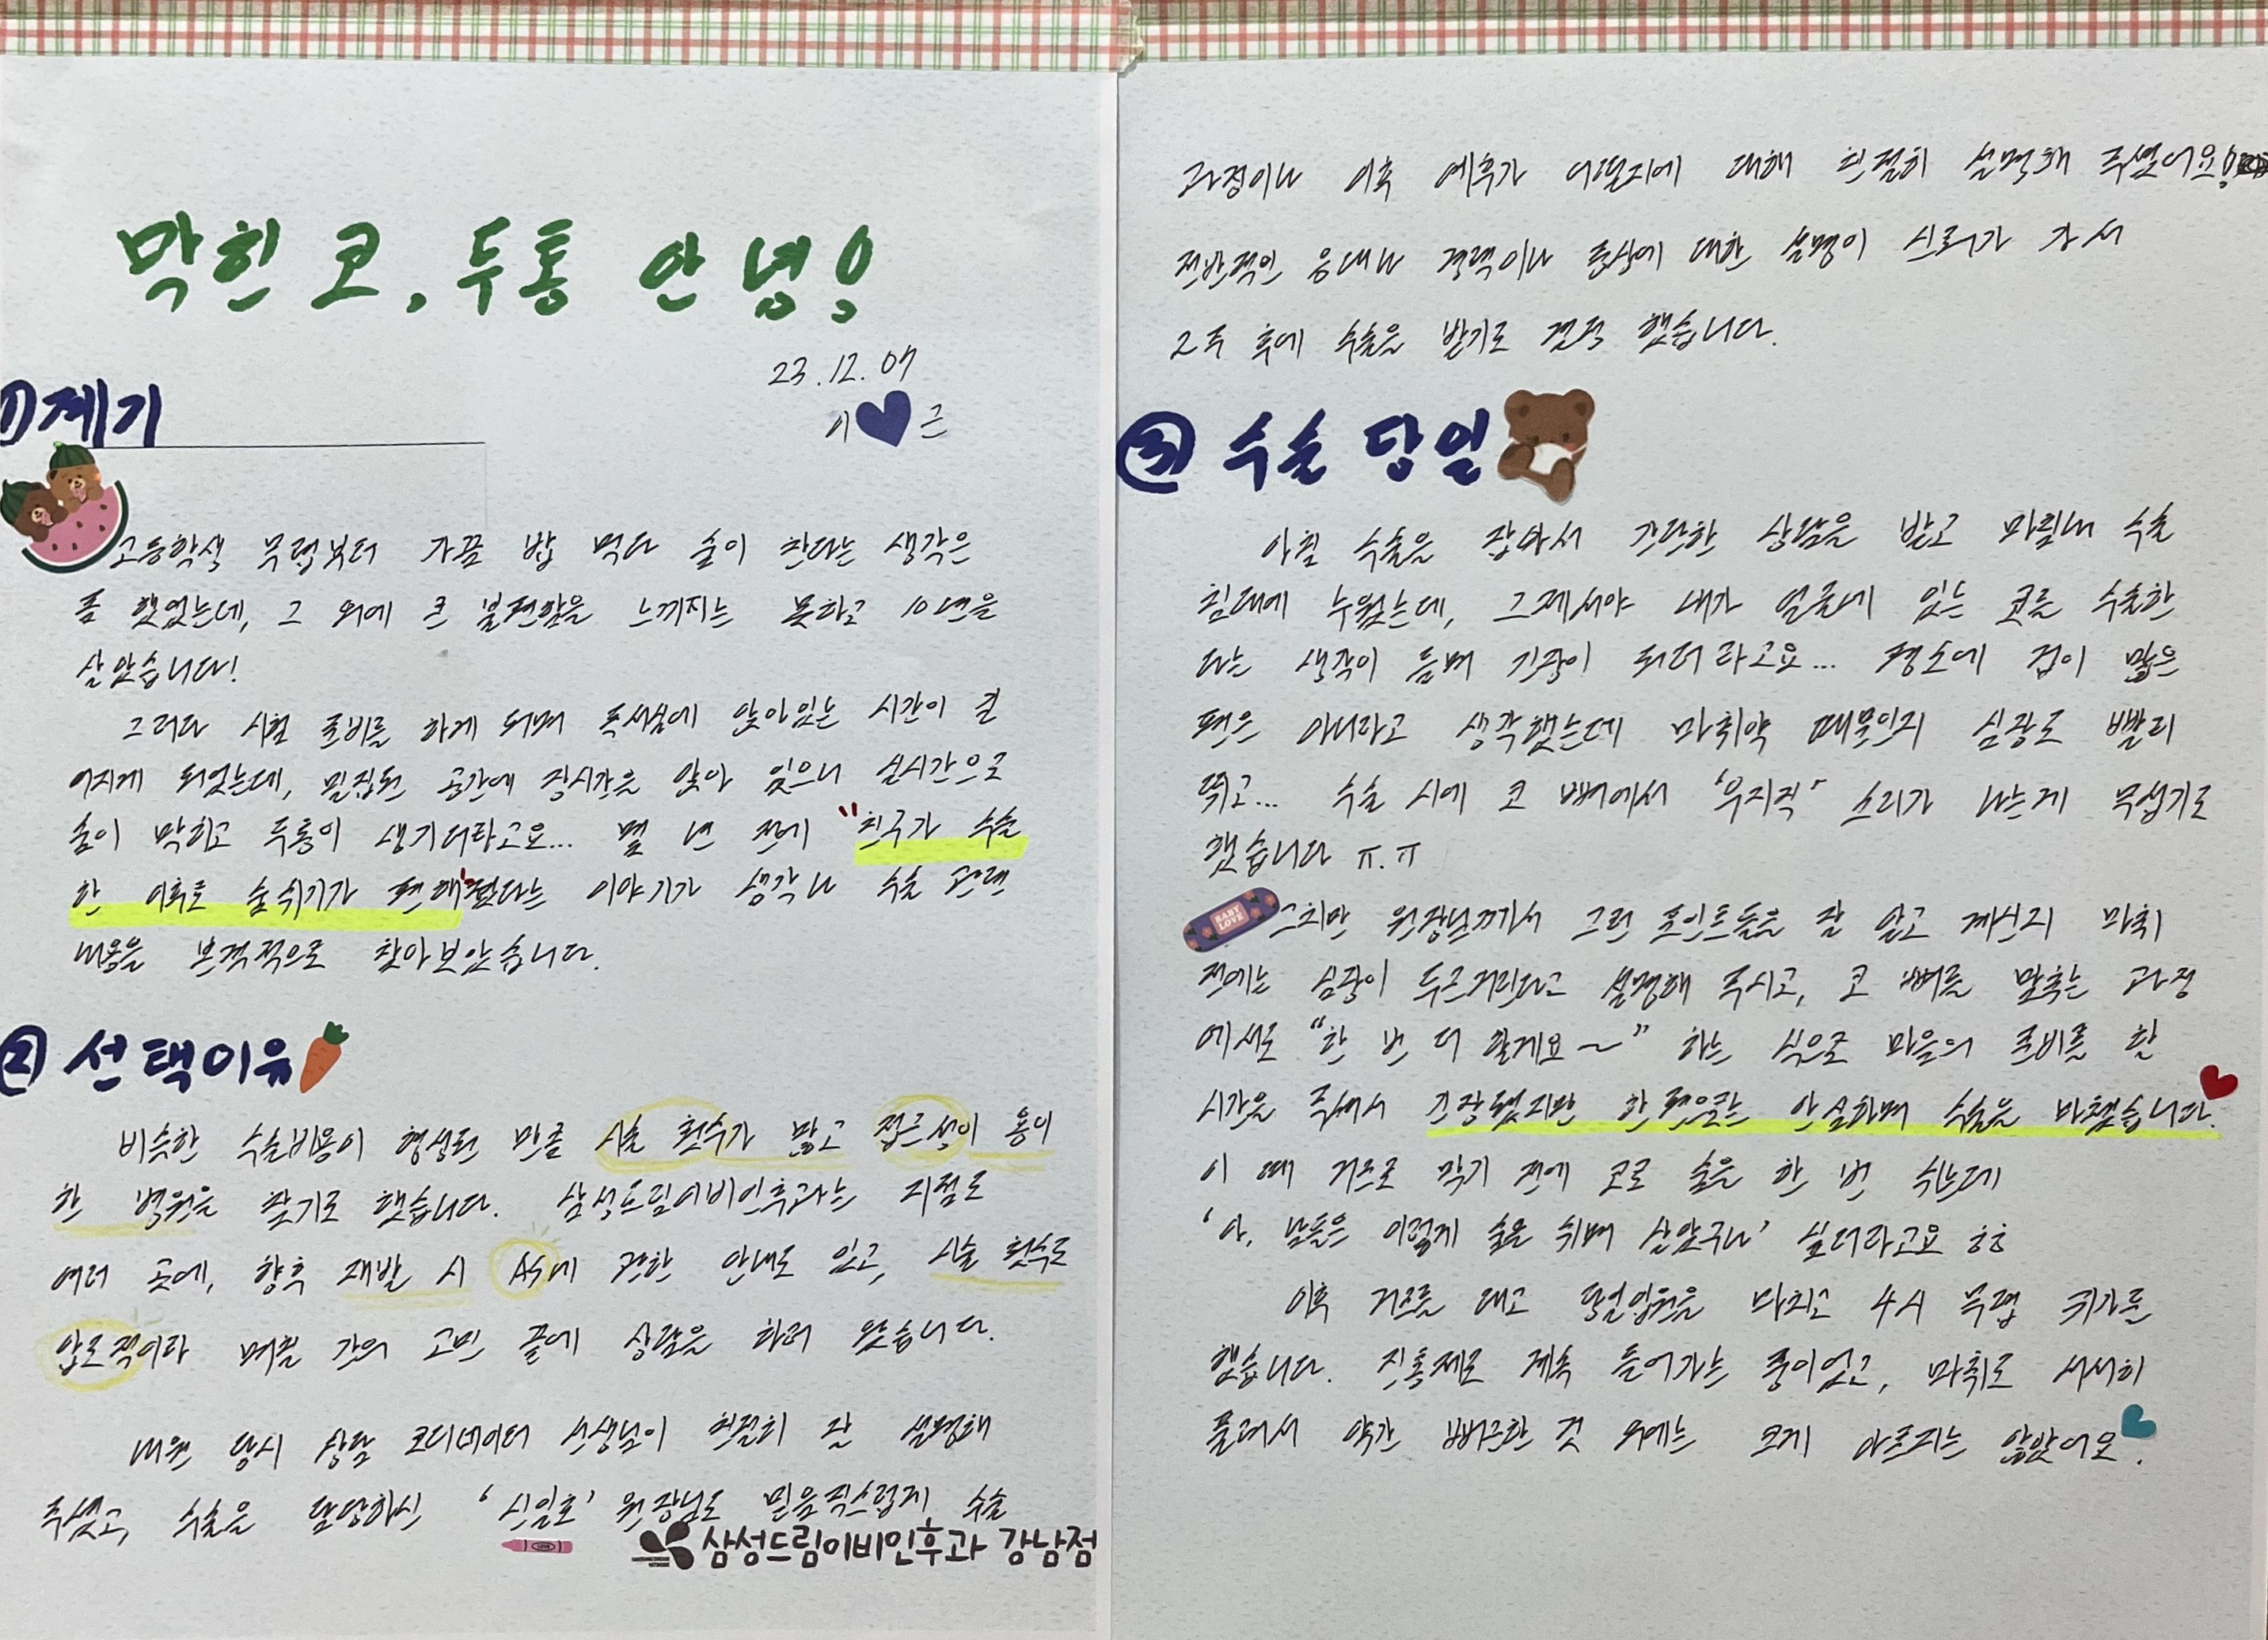 막힌 코, 두통 안녕!
23.12.07
이 근
① 계기
고등학생 무렵부터 가끔 밥 먹다 숨이 찬다는 생각은
좀 했었는데, 그 외에 큰 불편함을 느끼지는 못하고 10년을
살았습니다!
그러다 시험 준비를 하게 되며 독서실에 앉아있는 시간이 길
어지게 되었는데, 밀집된 공간에 장시간을 앉아 있으니 실시간으로
숨이 막히고 두통이 생기더라고요... 몇 년 전에 "친구가 수술
한 이후로 숨쉬기가 편해"졌다는 이야기가 생각나 수술 관련
내용을 본격적으로 찾아보았습니다.
② 선택이유
비슷한 수술비용이 형성된 만큼 시술 횟수가 많고 접근성이 용이
한 병원을 찾기로 했습니다. 삼성드림이비인후과는 지점도
여러 곳에, 향후 재발 시 AS에 관한 안내도 있고, 시술 횟수도
압도적이라 며칠 간의 고민 끝에 상담을 하러 왔습니다.
내원 당시 상담 코디네이터 선생님이 친절히 잘 설명해
주셨고, 수술을 담당하신 '신일호' 원장님도 믿음직스럽게 수술
삼성드림이비인후과 강남점
과정이나 이후 예후가 어떨지에 대해 친절히 설명해 주셨어요!
전반적인 응대나 경력이나 증상에 대한 설명이 신뢰가 가서
2주 후에 수술을 받기로 결정 했습니다.
③ 수술 당일
아침 수술을 잡아서 간단한 상담을 받고 마침내 수술
침대에 누웠는데, 그제서야 내가 얼굴에 있는 코를 수술한
다는 생각이 들며 긴장이 되더라고요... 평소에 겁이 많은
편은 아니라고 생각했는데 마취약 때문인지 심장도 빨리
뛰고... 수술 시에 코 뼈에서 '우지직' 소리가 나는게 무섭기도
했습니다 ㅠ.ㅠ
그치만 원장님께서 그런 포인트들을 잘 알고 계신지 마취
전에는 심장이 두근거린다고 설명해 주시고, 코 뼈를 맞추는 과정
에서도 "한 번 더 할게요~" 하는 식으로 마음의 준비를 할
시간을 주셔서 긴장됐지만 한편으로는 안심하며 수술을 마쳤습니다.
이 때 거즈로 막기 전에 코로 숨을 한 번 쉬는데
'아, 남들은 이렇게 숨을 쉬며 살았구나' 싶더라고요 ㅎㅎ
이후 거즈를 대고 당일입원을 마치고 4시 무렵 귀가를
했습니다. 진통제도 계속 들어가는 중이었고, 마취도 서서히
풀려서 약간 뻐근한 것 외에는 크게 아프지는 않았어요.
BABY LOVE